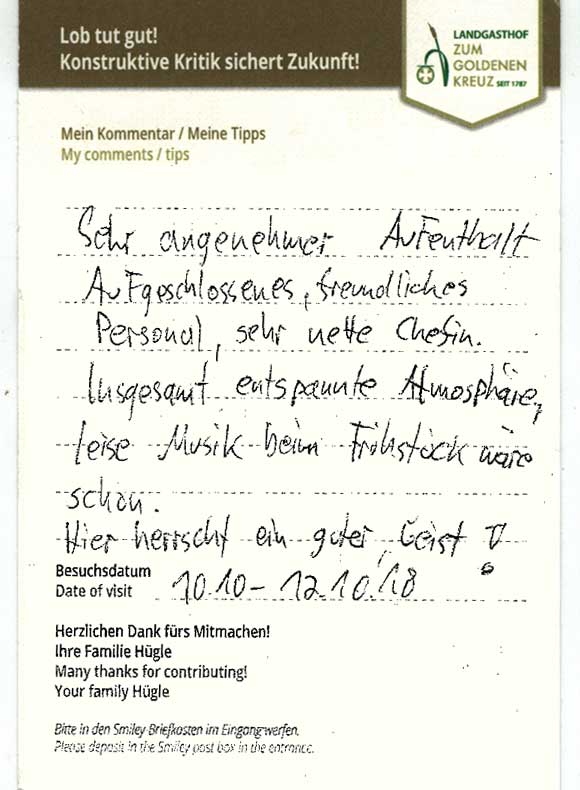 Lob tut gut!
Konstruktive Kritik sichert Zukunft!
LANDGASTHOF
ZUM
GOLDENEN
KREUZ SEIT 1787
Mein Kommentar / Meine Tipps
My comments / tips
Sehr angenehmer Aufenthalt
Aufgeschlossenes, freundliches
Personal, sehr nette Chefin.
Insgesamt entspannte Atmosphäre,
leise Musik beim Frühstück wäre
schön.
Hier herrscht ein guter „Geist"!
Besuchsdatum
Date of visit 10.10 – 12.10.18
Herzlichen Dank fürs Mitmachen!
Ihre Familie Hügle
Many thanks for contributing!
Your family Hügle
Bitte in den Smiley Briefkasten im Eingang werfen.
Please deposit in the Smiley post box in the entrance.